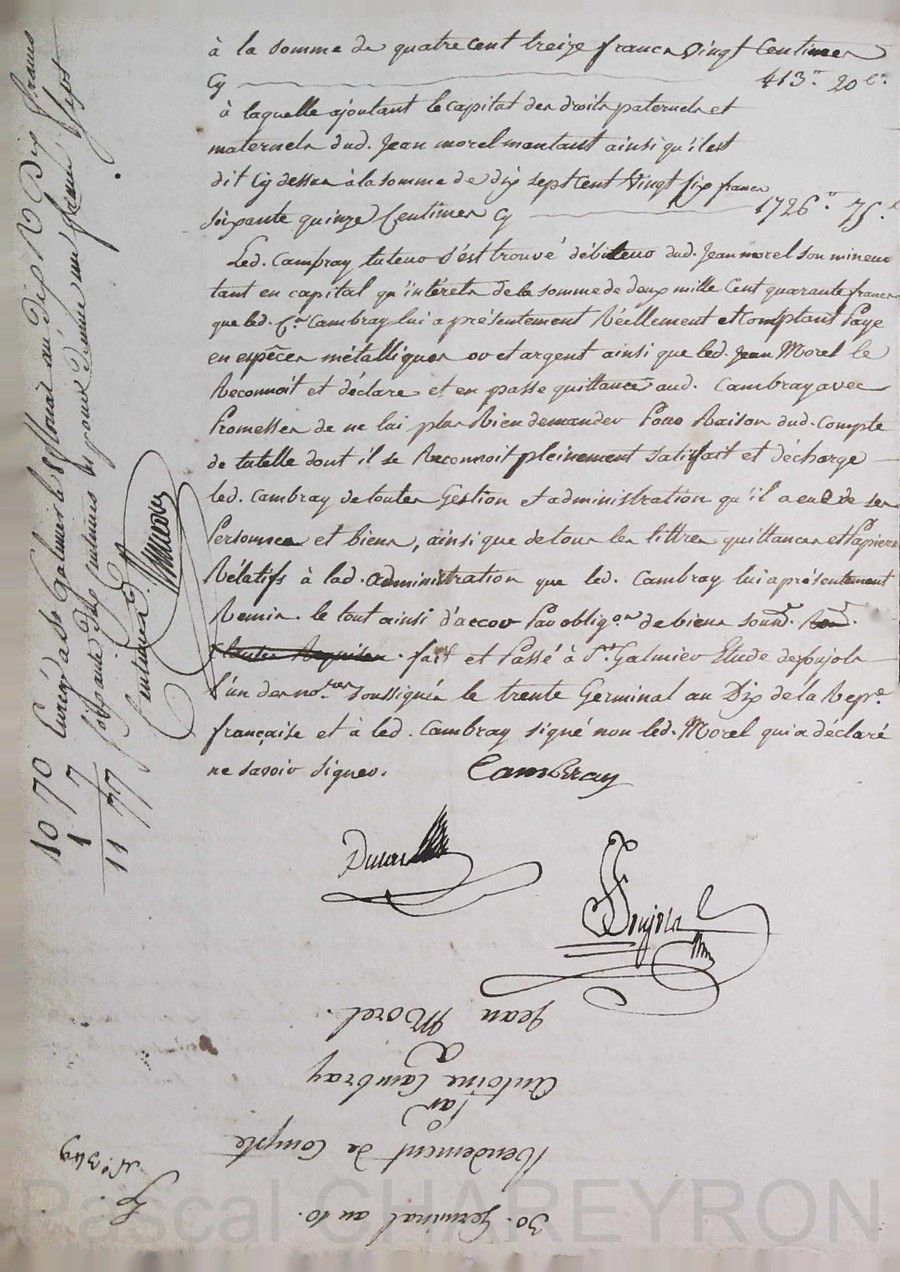 à la somme de quatre cent treize francs vingt centimes
Cy 413ᶠʳ 20 cˢ.
à laquelle ajoutant le capital des droits paternels et
maternels dud. Jean morel montant ainsi qu'il est
dit Cy dessus à la somme de dix sept Cent vingt six francs
soixante quinze Centimes cy 1726ᶠʳ 75.ᶜ
Led. Cambray tuteur s'est trouvé débiteur dud. Jean morel son mineur
tant en capital qu'intérets de la somme de deux mille Cent quarante francs
que led. Cᵉⁿ Cambray lui a présentement Réellement et Comptant Payé
en espêces métalliques or et argent ainsi que led. Jean Morel le
Reconnoit et déclare et en passe quittance aud. Cambray avec
Promesses de ne lui plus Rien demander Pour Raison dud. Compte
de tutelle dont il se Reconnoit pleinement satisfait et décharge
led. Cambray de toutes Gestion et administration qu'il a eue de ses
Personnes et biens, ainsi que de tous les tittres quittances et Papiers
Rélatifs à lad. administration que led. Cambray lui a présentement
Remis. le tout ainsi d'accor Par obligᵒⁿ de biens soumˢ.
fait et Passé à Sᵗ Galmier Etude de Poujols
l'un des noʳᵉˢ soussignés le trente Germinal an Dix de la Repᵉ.
française et à led. Cambray signé non led. Morel qui a déclaré
ne savoir signer. Cambray
Poujols
Jean Morel.
à
Antoine Cambray
Par
Rendement de Compte
30. Germinal an 10.
Nº 349
Enreg.é à St Galmier le 8 floreal an dix R/ Dix francs
soixante dix centimes et pour dixme un franc sept
centimes
10 70
1 7
11 77